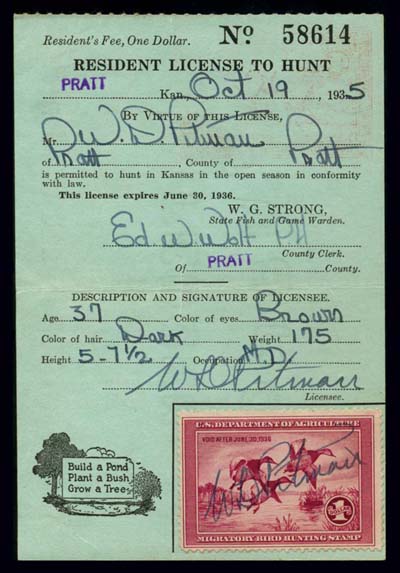 Resident's Fee, One Dollar. No 58614
RESIDENT LICENSE TO HUNT
PRATT Kan. Oct 19, 1935
BY VIRTUE OF THIS LICENSE,
Mr. W. D. Pitman
of Pratt, County of Pratt
is permitted to hunt in Kansas in the open season in conformity
with law.
This license expires June 30, 1936.
W. G. STRONG,
State Fish and Game Warden.
Ed W
County Clerk.
Of PRATT County.
DESCRIPTION AND SIGNATURE OF LICENSEE.
Age 37 Color of eyes Brown
Color of hair Dark Weight 175
Height 5-7 1/2 Occupation M.D.
Pitman
Licensee.
Build a Pond
Plant a Bush
Grow a Tree
U.S. DEPARTMENT OF AGRICULTURE
VOID AFTER JUNE 30, 1936
Pitman
$1
MIGRATORY BIRD HUNTING STAMP